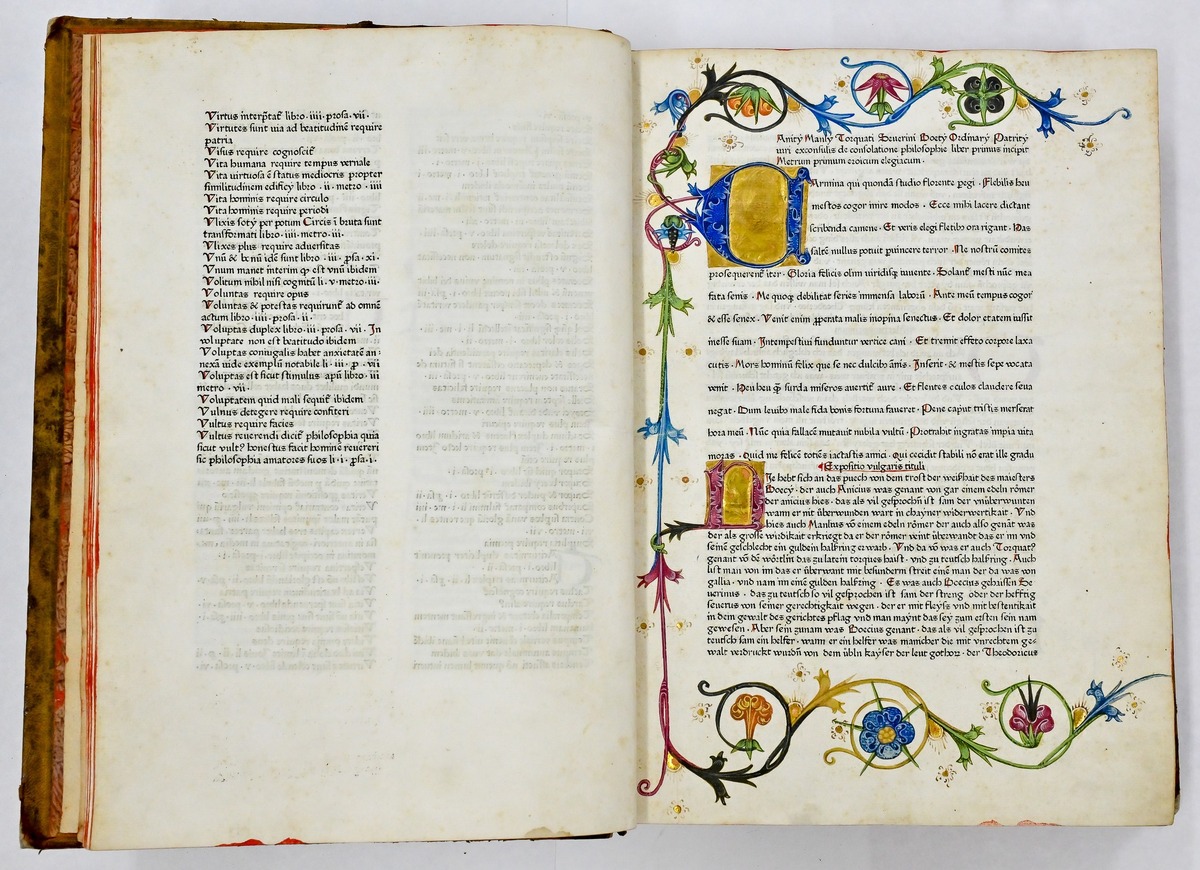 Virtus interp̄taƭ libro . iiii . prosa . vii .
Virtutes sunt uia ad beatitudinē require
patria
Visus require cognosciƭ
Vita humana require tempus vernale
Vita uirtuosa ē status mediocris propter
similitudinem edificÿ libro . ii . metro . iiii
Vita hominis require circulo
Vita hominis require periodi
Vlixis sotÿ per potum Circis ī bruta sunt
transformati libro . iiii . metro . iii .
Vlixes plus require aduersitas
Vnū & bonū idē sunt libro . iii . ꝓsa . xi .
Vnum manet interim qꝫ est vnū ibidem
Volitum nihil nisi cognitū li . v . metro . iii .
Voluntas require opus
Voluntas & potestas requirunƭ ad omnē
actum libro . iiii . prosa . ii .
Voluptas duplex libro . iii . prosa . vii . In
voluptate non est beatitudo ibidem
Voluptas coniugalis habet anxietatē an :
nexā uide exemplū notabile li . iii . ꝓ . vii
Voluptas est sicut stimulus apū libro . iii
metro . vii .
Voluptatem quid mali sequiƭ ibidem
Vulnus detegere require confiteri
Vultus require facies
Vultus reuerendi diciƭ philosophia quia
sicut vulƭ? honestus facit hominē reuereri
sic philosophia amatores suos li . i . ꝓsa . i .
Anitÿ Manlÿ Torquati Seuerini Boetÿ Ordinarÿ Patritÿ
uiri exconsulis de consolatione philosophie liber primus incipit
Metrum primum eroicum elegiacum .
CArmina qui quondā studio florente pegi . Flebilis heu
mestos cogor inire modos . Ecce mihi lacere dictant
scribenda camene . Et veris elegi fletibꝰ ora rigant . Has
saltē nullus potuit ꝑuincere terror . Ne nostrū comites
prosequerenƭ iter . Gloria felicis olim uiridisqꝫ iuuente . Solanƭ mesti nūc mea
fata senis . Me quoqꝫ debilitat series immensa laborū . Ante meū tempus cogor
& esse senex . Venit enim ꝓperata malis inopina senectus . Et dolor etatem iussit
inesse suam . Intempestiui funduntur vertice cani . Et tremit effeto corpore laxa
cutis . Mors hominū felix que se nec dulcibꝰ ānis . Inserit . & mestis sepe vocata
venit . Heu heu qꝫ surda miseros auertiƭ aure . Et flentes oculos claudere seua
negat . Dum leuibꝰ male fida bonis fortuna faueret . Pene caput tristis merserat
hora meū . Nūc quia fallacē mutauit nubila vultū . Protrahit ingratas impia uita
moras . Quid me felicē totiēs iactastis amici . qui cecidit stabili nō erat ille gradu
Expositio vulgaris tituli
HJe hebt sich an das puech von dem trost der weißhait des maisters
Boecÿ . der auch Anicius was genant von gar einem edeln römer
der anicius hies . das als vil gesprochen ist sam der vnüberwunten
wann er nit überwunden wart in chainer widerwertikait . Vnd
hies auch Manlius vō einem edeln römer der auch also genāt was
der als grosse wirdikait erkrieget da er der römer veint überwande das er im vnd
seinē geschlecht ein guldein halßring erwarb . Vnd da vō was er auch Torquaƭ?
genant vō dē wörtlin das zu latein torques haist . vnd zu teutsch halßring . Auch
list man von im das er überwant mit besundern streit einē man der da was von
gallia . vnd nam im einē gulden halßring . Es was auch Boecius gehaissen Se
uerinus . das zu teutsch so vil gesprochen ist sam der streng oder der hefftig
seuerus von seiner gerechtigkait wegen . der er mit fleyß vnd mit bestentikait
in dem gewalt des gerichtes pflag vnd man maynt das sey zum ersten sein nam
gewesen . Aber sein zunam was Boecius genant . das als vil gesprochen ist zu
teutsch sam ein helfer . wann er ein helfer was mancher die mit vnrechtem ge⸗
walt verdruckt wurdn̄ von dem übln kayser der leut gothorꝫ . der Theodoricus